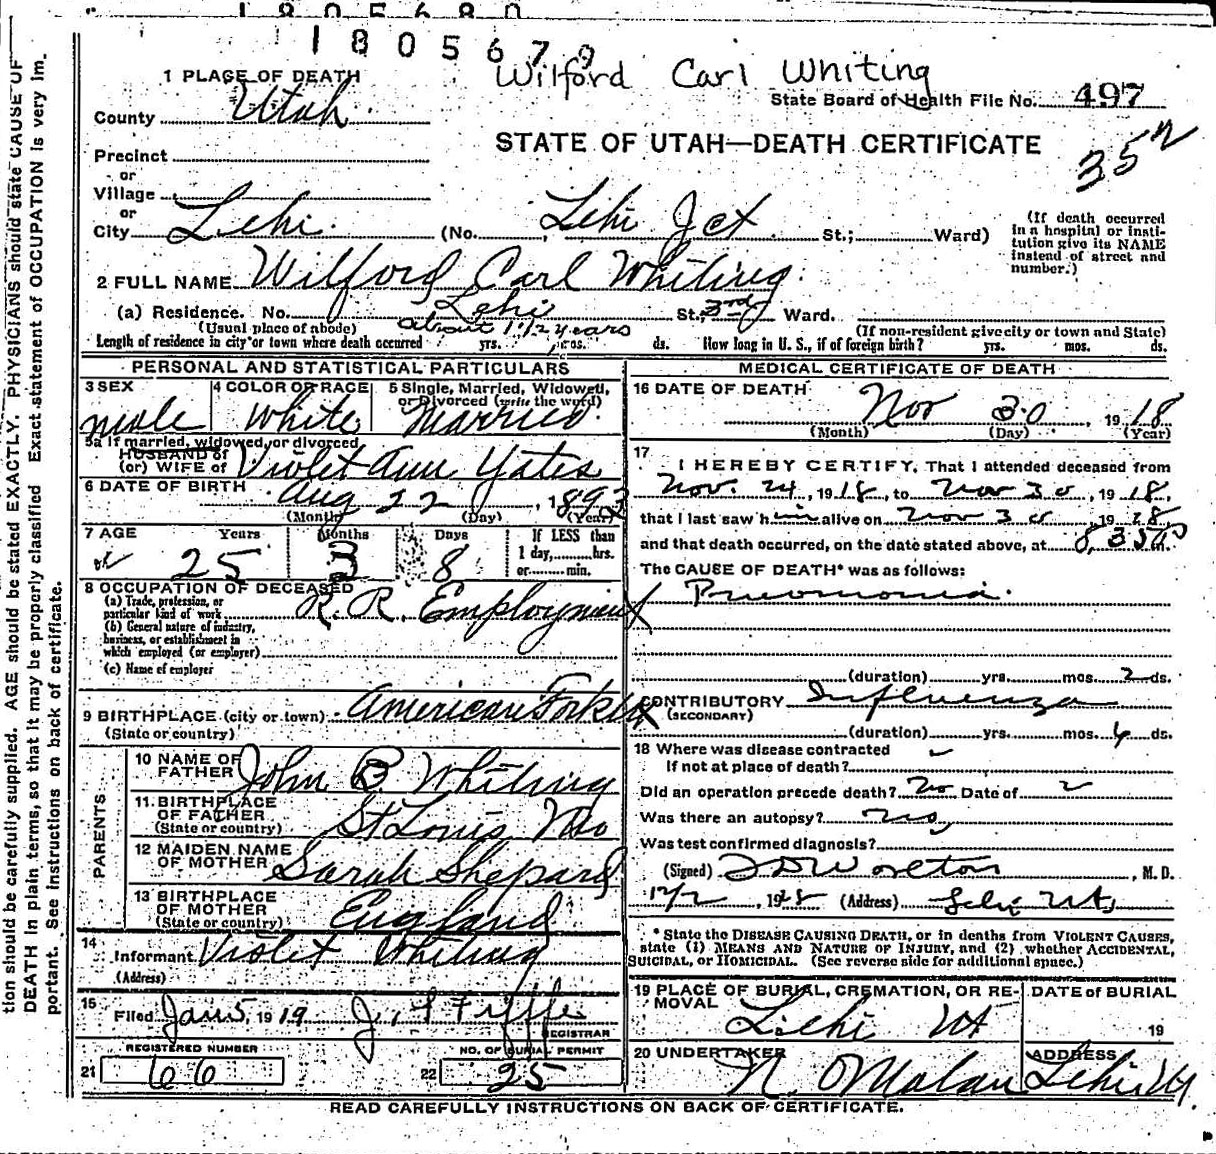 1805680
1805679
Wilford Carl Whiting
1 PLACE OF DEATH
State Board of Health File No. 497
County Utah
STATE OF UTAH—DEATH CERTIFICATE
35
Precinct
or
Village
or
City Lehi (No. Lehi Jct St.; Ward)
(If death occurred in a hospital or institution give its NAME instead of street and number.)
2 FULL NAME Wilford Carl Whiting
(a) Residence. No. Lehi St., 3rd Ward.
(Usual place of abode) (If non-resident give city or town and State)
Length of residence in city or town where death occurred about 1 1/2 years yrs. mos. ds. How long in U. S., if of foreign birth? yrs. mos. ds.
PERSONAL AND STATISTICAL PARTICULARS
3 SEX
male
4 COLOR OR RACE
White
5 Single, Married, Widowed, or Divorced (write the word)
Married
5a If married, widowed, or divorced
HUSBAND of
(or) WIFE of Violet Ann Yates
6 DATE OF BIRTH Aug 22, 1893
(Month) (Day) (Year)
7 AGE Years Months Days If LESS than
1 day, hrs.
or min.
25 3 8
8 OCCUPATION OF DECEASED
(a) Trade, profession, or particular kind of work R. R. Employment
(b) General nature of industry, business, or establishment in which employed (or employer)
(c) Name of employer
9 BIRTHPLACE (city or town) American Fork Ut
(State or country)
PARENTS
10 NAME OF FATHER John B. Whiting
11 BIRTHPLACE OF FATHER St Louis Mo
(State or country)
12 MAIDEN NAME OF MOTHER Sarah Shepard
13 BIRTHPLACE OF MOTHER England
(State or country)
14
Informant Violet Whiting
(Address)
15
Filed Jan 5, 1919 J. F. Fiffe
REGISTRAR
REGISTERED NUMBER
21 66
NO. OF BURIAL PERMIT
22 25
MEDICAL CERTIFICATE OF DEATH
16 DATE OF DEATH
Nov 30, 1918
(Month) (Day) (Year)
17
I HEREBY CERTIFY, That I attended deceased from
Nov. 24, 1918, to Nov 30, 1918,
that I last saw him alive on Nov 30, 1918
and that death occurred, on the date stated above, at 8,35 P m.
The CAUSE OF DEATH* was as follows:
Pneumonia.
(duration) yrs. mos. 2 ds.
CONTRIBUTORY Influenza
(SECONDARY)
(duration) yrs. mos. 6 ds.
18 Where was disease contracted
If not at place of death?
Did an operation precede death? No Date of
Was there an autopsy? No
Was test confirmed diagnosis?
(Signed) , M. D.
12/2, 1918 (Address) Lehi Ut,
* State the DISEASE CAUSING DEATH, or in deaths from VIOLENT CAUSES,
state (1) MEANS AND NATURE OF INJURY, and (2) whether ACCIDENTAL,
SUICIDAL, or HOMICIDAL. (See reverse side for additional space.)
19 PLACE OF BURIAL, CREMATION, OR REMOVAL
Lehi Ut
DATE of BURIAL
19
20 UNDERTAKER
N. O Malan
ADDRESS
Lehi, Ut.
READ CAREFULLY INSTRUCTIONS ON BACK OF CERTIFICATE.
tion should be carefully supplied. AGE should be stated EXACTLY. PHYSICIANS should state CAUSE OF
DEATH in plain terms, so that it may be properly classified. Exact statement of OCCUPATION is very im.
portant. See instructions on back of certificate.